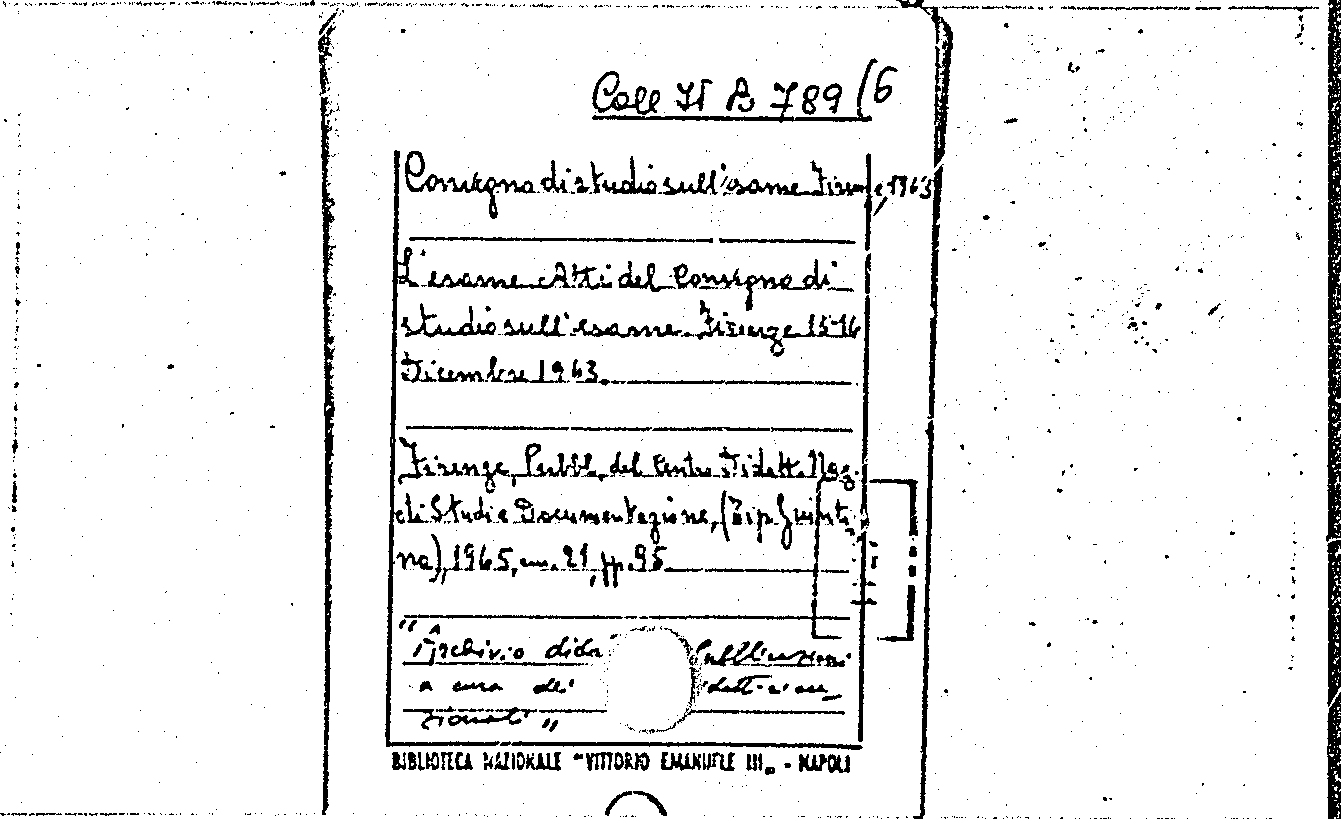 Coll II B 789 (6
Convegno di studio sull'esame Firenze, 1963
L'esame. Atti del Convegno di
studio sull'esame. Firenze 15-16
Dicembre 1963.
Firenze, Pubbl. del Centro Didatt. Naz.
di Studi e Documentazione, (Tip. Giunti
na), 1965, cm. 21, pp. 95
"Archivio dida Pubblicazioni
a cura dei
BIBLIOTECA NAZIONALE "VITTORIO EMANUELE III„ - NAPOLI